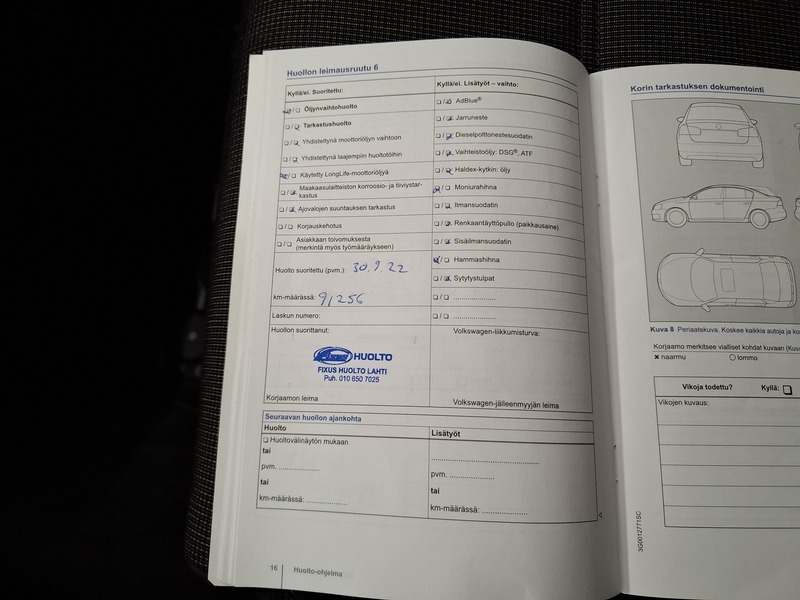 Huollon leimausruutu 6
Kyllä/ei. Suoritettu:
Öljynvaihtohuolto
Tarkastushuolto
Yhdistettynä moottoriöljyn vaihtoon
Yhdistettynä laajempiin huoltotöihin
Käytetty LongLife-moottoriöljyä
Maakaasulaitteiston korroosio- ja tiiviystar-
kastus
Ajovalojen suuntauksen tarkastus
Korjauskehotus
Asiakkaan toivomuksesta
(merkintä myös työmääräykseen)
Huolto suoritettu (pvm.): 30.9.22
km-määrässä: 91256
Laskun numero:
Huollon suorittanut:
HUOLTO
FIXUS HUOLTO LAHTI
Puh. 010 650 7025
Korjaamon leima
Kyllä/ei. Lisätyöt – vaihto:
AdBlue®
Jarruneste
Dieselpolttonestesuodatin
Vaihteistoöljy: DSG®, ATF
Haldex-kytkin: öljy
Moniurahihna
Ilmansuodatin
Renkaantäyttöpullo (paikkausaine)
Sisäilmansuodatin
Hammashihna
Sytytystulpat
Volkswagen-liikkumisturva:
Volkswagen-jälleenmyyjän leima
Seuraavan huollon ajankohta
Huolto
Huoltovälinäytön mukaan
tai
pvm. ....................
tai
km-määrässä: ....................
Lisätyöt
pvm. ....................
tai
km-määrässä: ....................
16
Huolto-ohjelma
Korin tarkastuksen dokumentointi
Kuva 8 Periaatekuva. Koskee kaikkia autoja ja
Korjaamo merkitsee vialliset kohdat kuvaan
naarmu
lommo
Vikoja todettu? Kyllä:
Vikojen kuvaus:
3G0012771SC